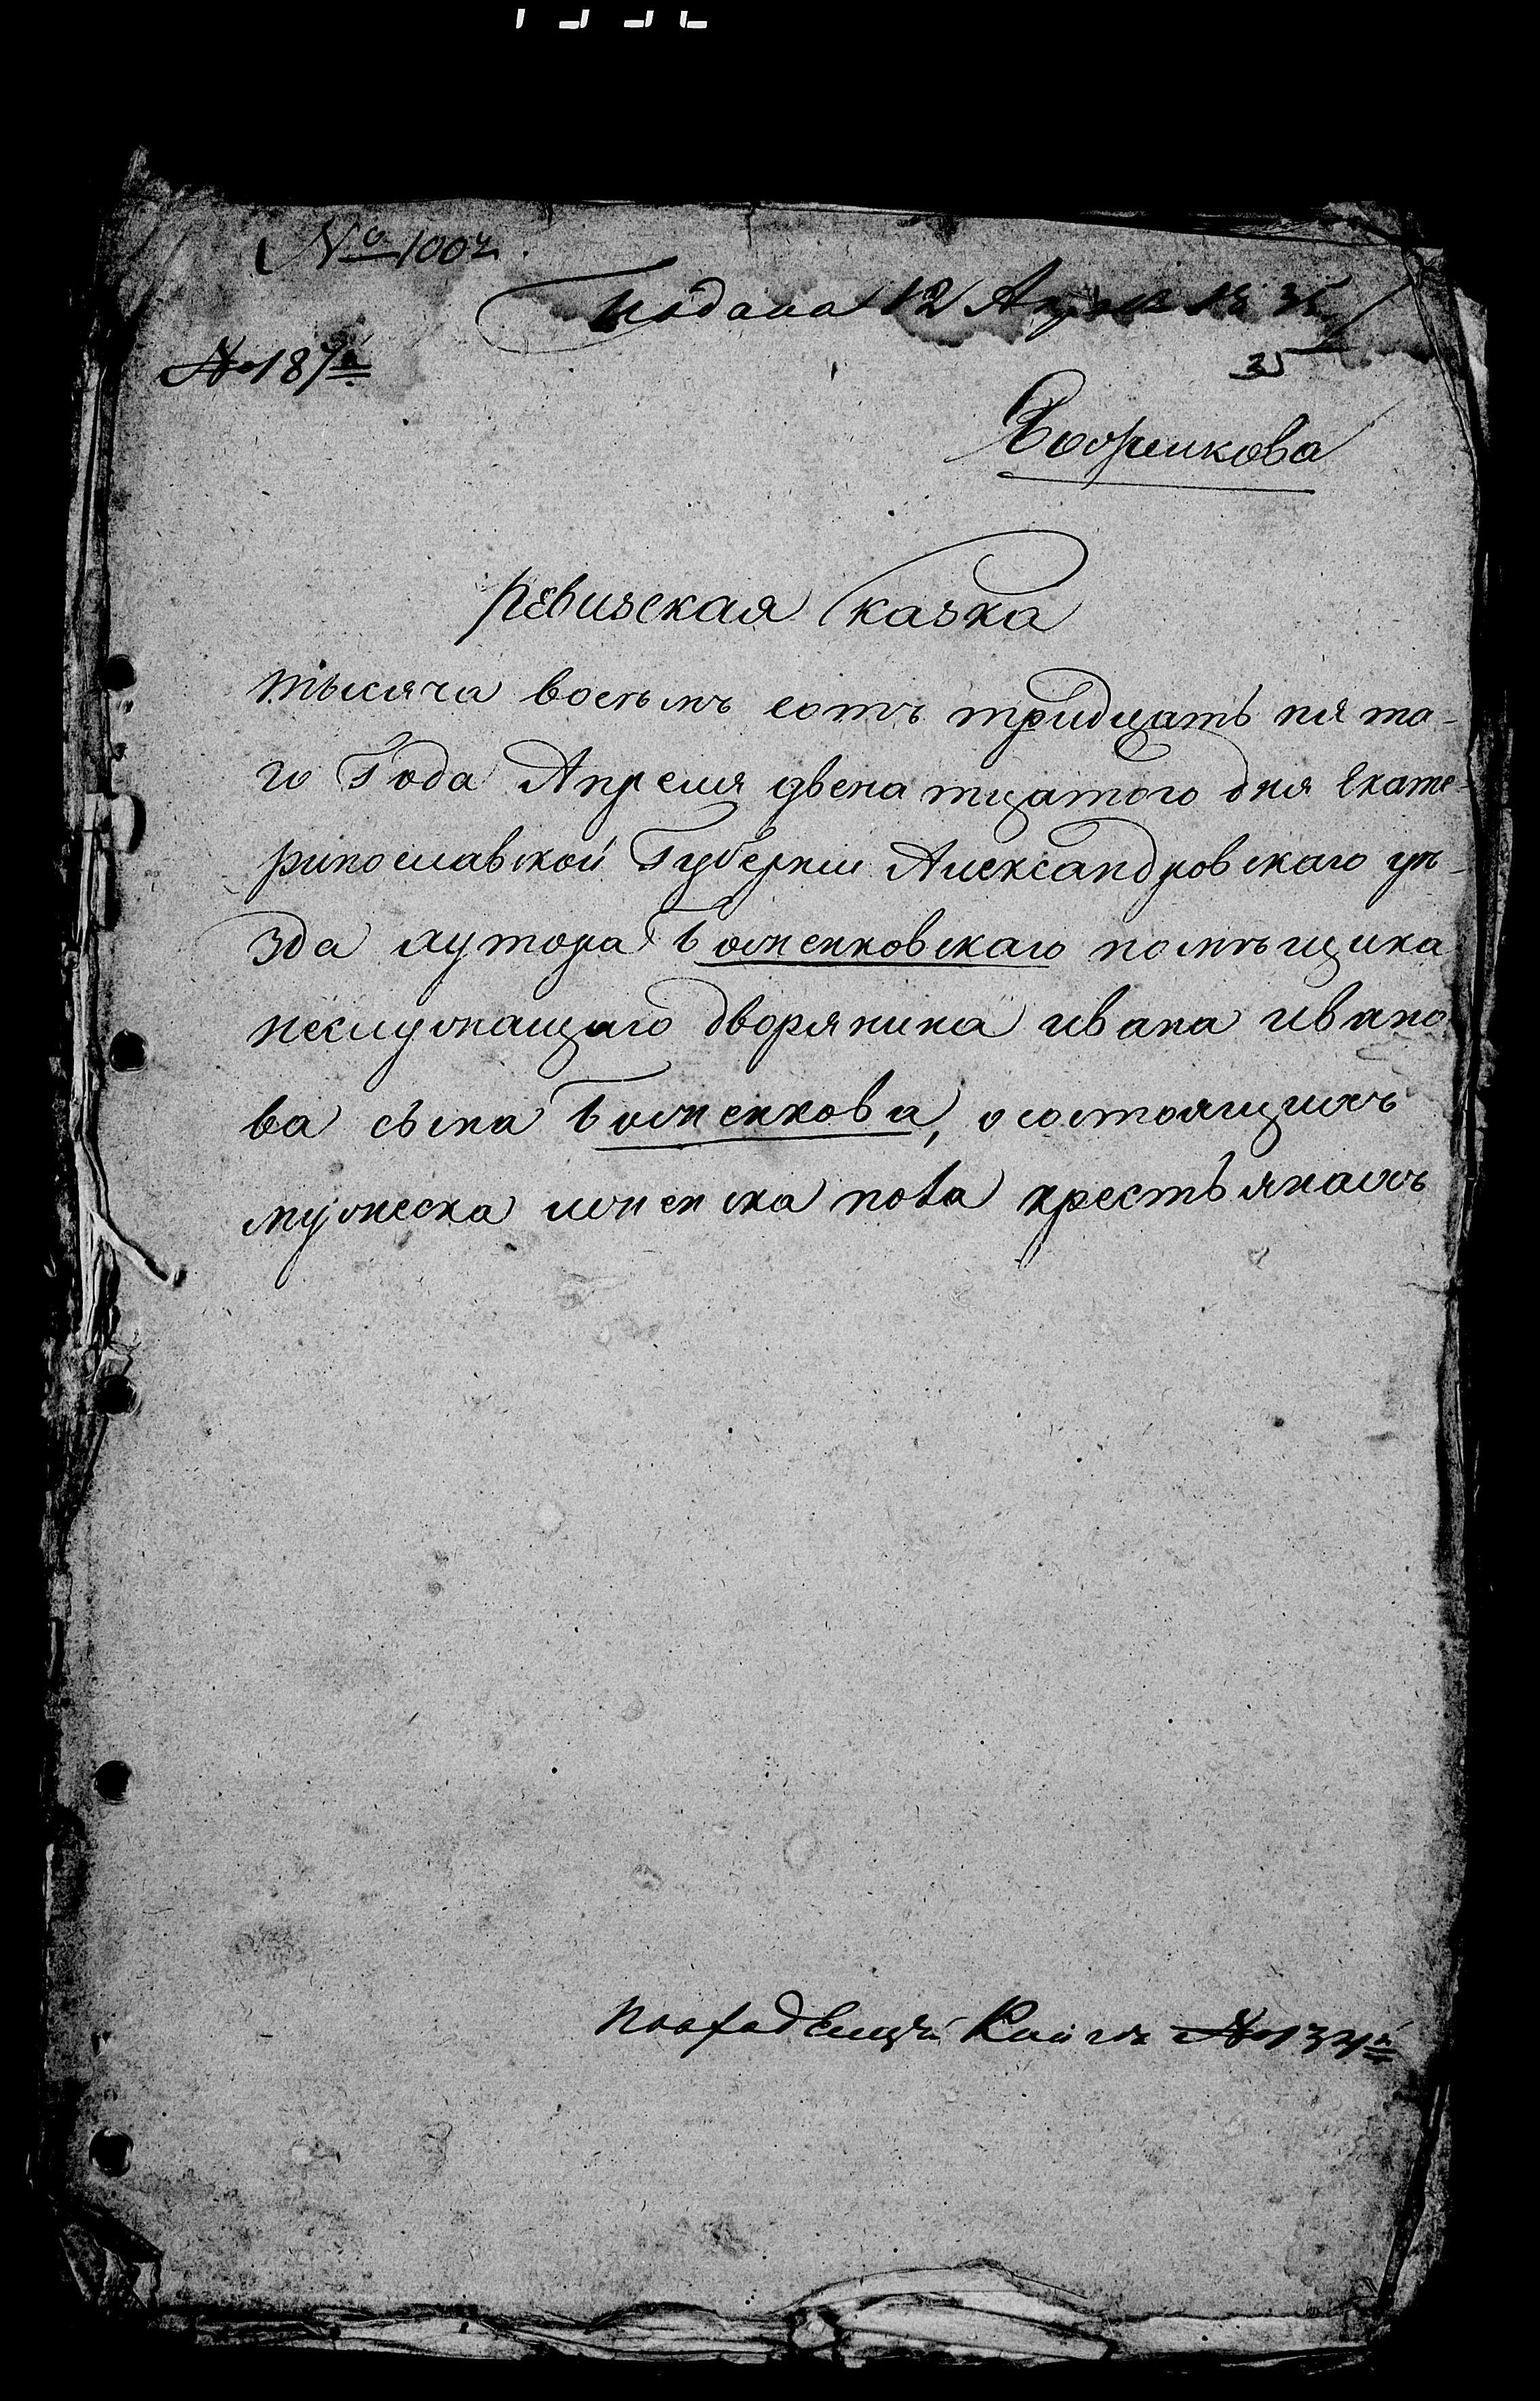 № 1002
Подана 12 Апреля 1835
№ 187й
35
Ревизская казка
тысяча восемъ сотъ тридцать пято-
го Года Апреля двенатцатого дня Екате-
ринославской Губерніи Александровскаго уѣ-
зда хутора Боженковскаго помѣщика
неслужащаго дворянина ивана ивано
ва сына Боженкова, о состоящихъ
мужеска иженска пола крестьянахъ
Книгѣ №